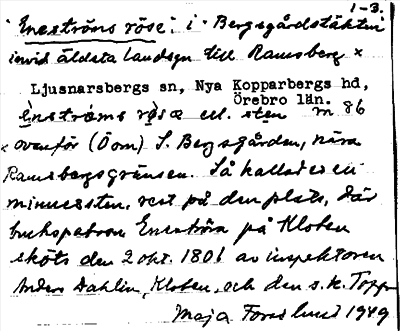 1-3.
"Eneströms röse" i Bergsgårdstäkten
invid äldsta landsvn till Ramsberg x
Ljusnarsbergs sn, Nya Kopparbergs hd,
Örebro län.
Enströms röse ell. sten m 86
x ovanför (Öom) S. Bergsgården, nära
Ramsbergsgränsen. Så kallades en
minnessten, rest på den plats, där
brukspatron Eneström på Kloten
sköts den 2 okt. 1801 av inspektoren
Anders Dahlin, Kloten, och den s.k. Topp
Maja Forsslund 1949